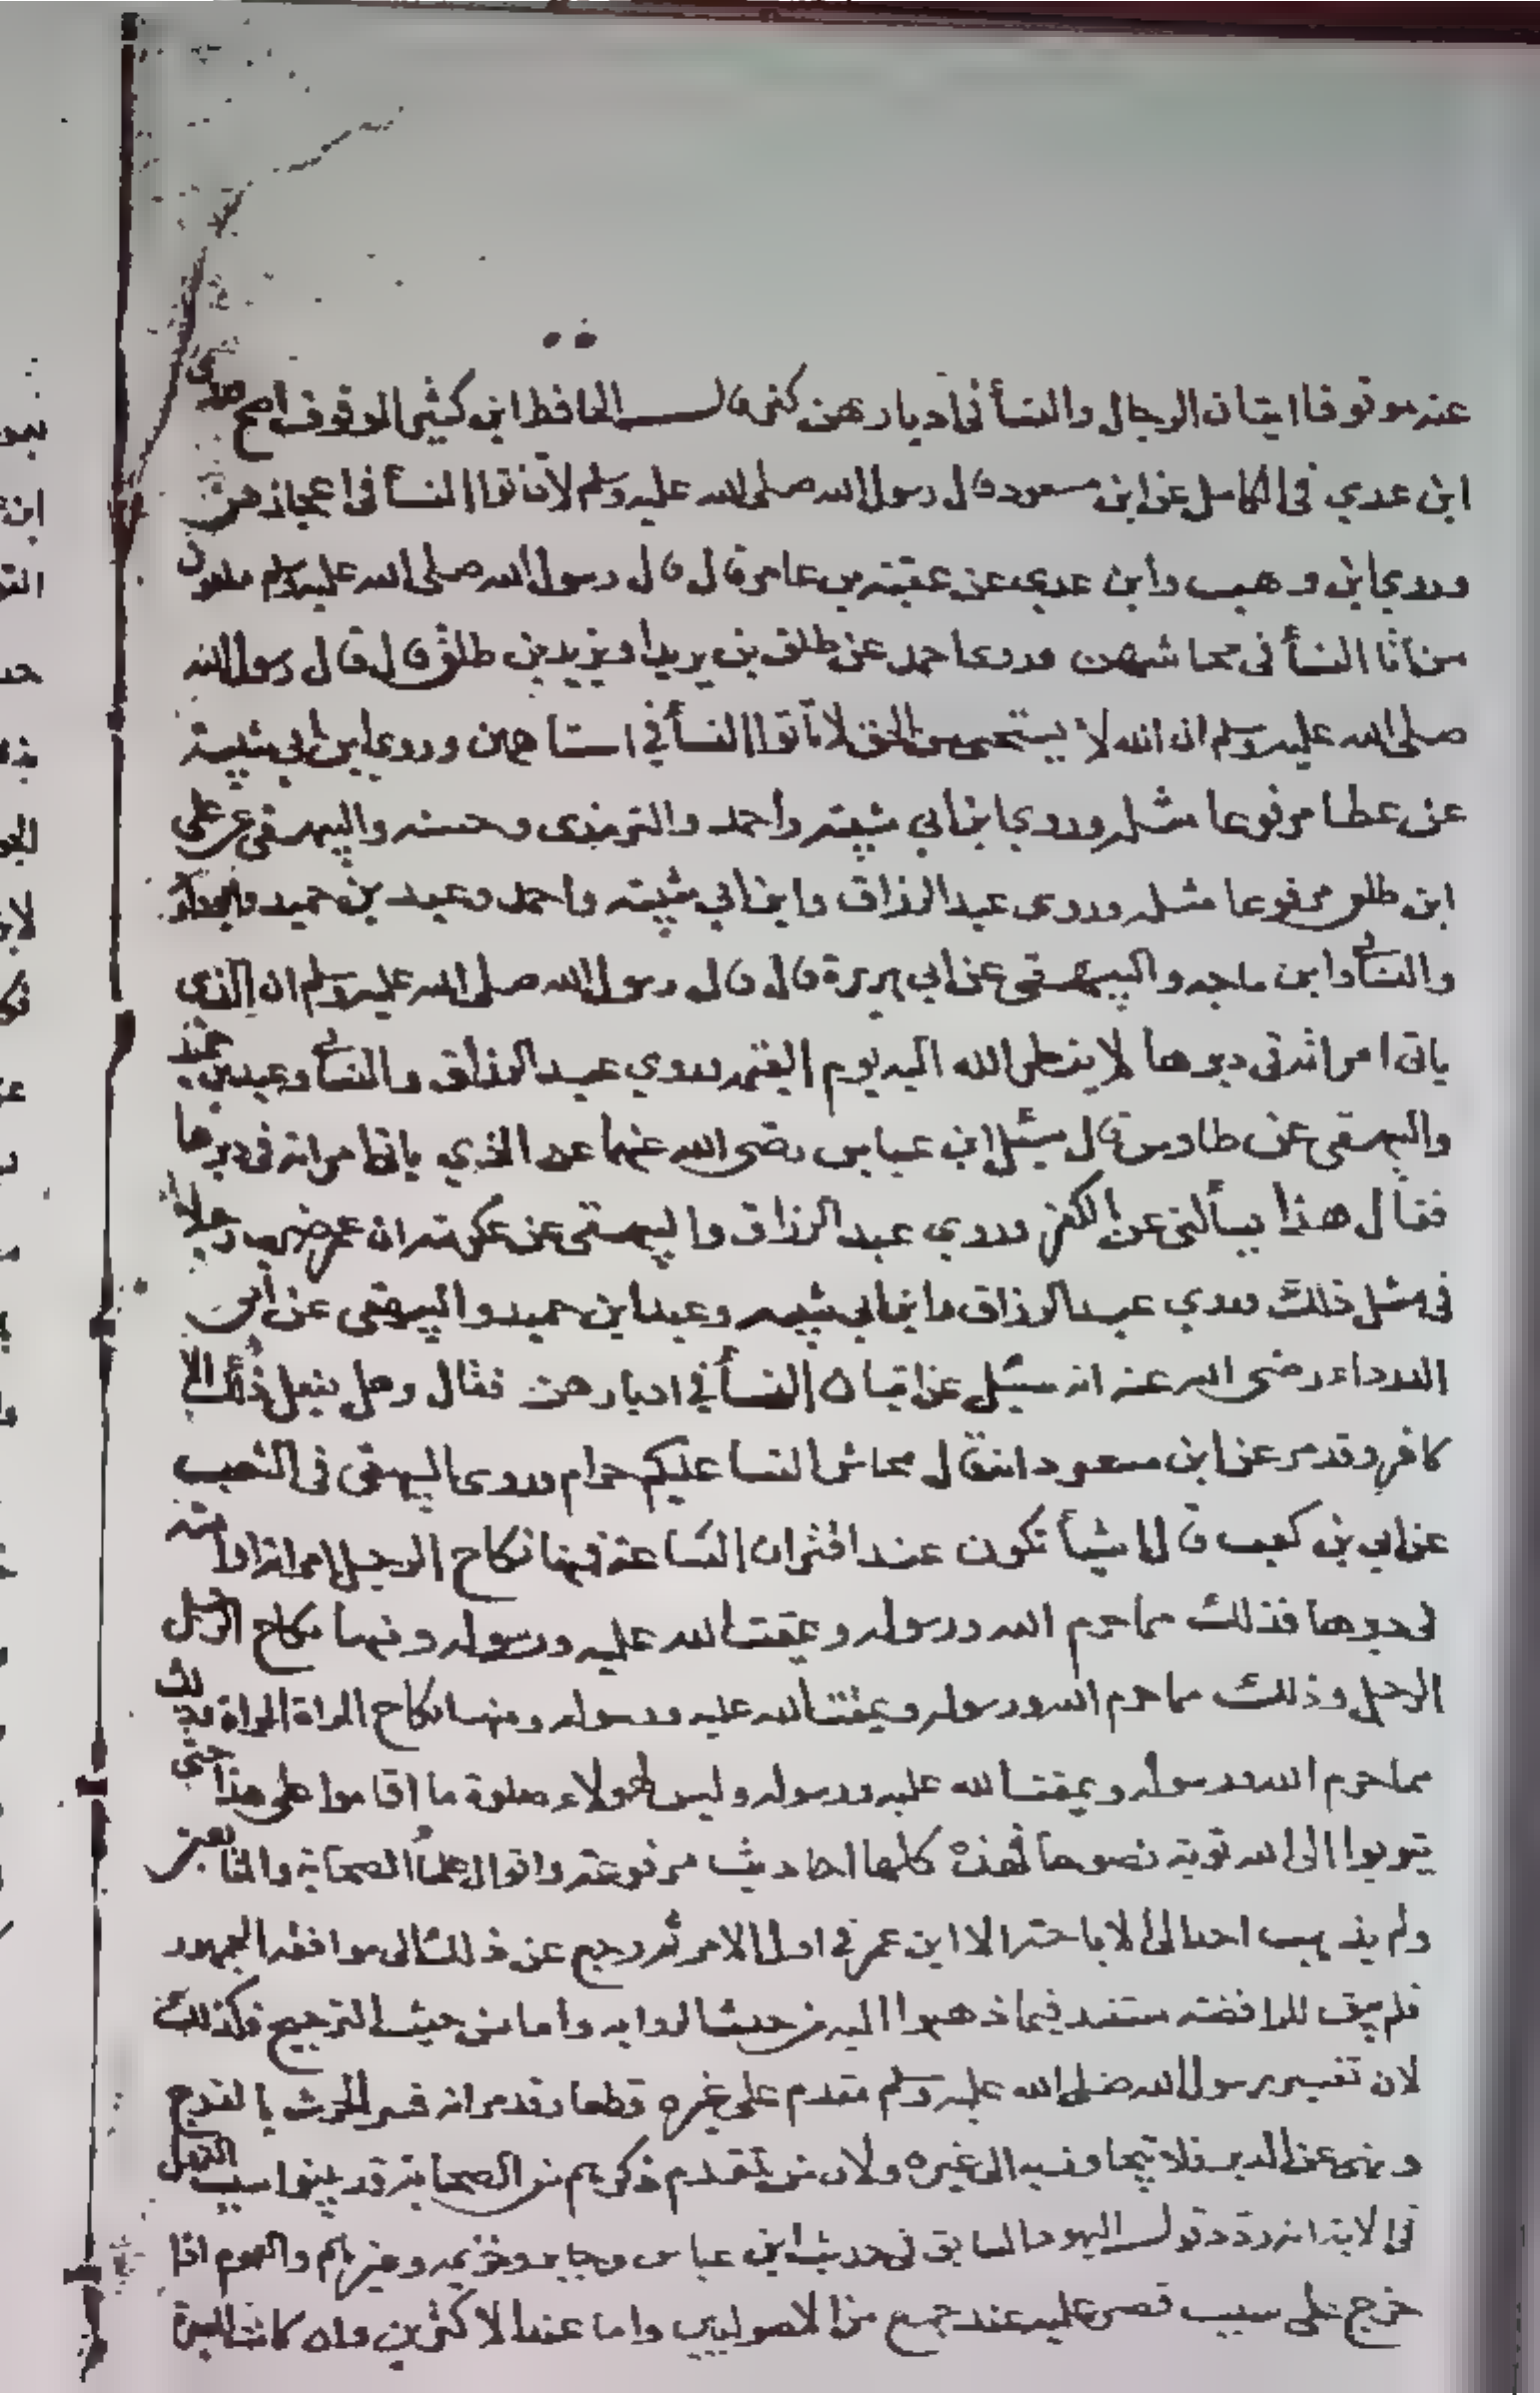 عنه موقوفا اتيان الرجال والنسأ في ادبارهن كفر قال الحافظ ابن كثير الموقوف اصح
ابن عدي في الكامل عن ابن مسعود قال رسول الله صلى الله عليه وسلم لا تاتوا النسأ في اعجازهن
وروى ابن وهب وابن عدي عن عقبة بن عامر قال قال رسول الله صلى الله عليه وسلم ملعون
من اتا النسأ في محاشهن وروى احمد عن طلق بن يزيد او يزيد بن طلق قال قال رسول الله
صلى الله عليه وسلم ان الله لا يستحى من الحق لا تأتوا النسأ في استاههن وروى ابن ابي شيبة
عن عطا مرفوعا مثله وروى ابن ابي شيبة واحمد والترمذى وحسنه والبيهقي عن علي
ابن طلق مرفوعا مثله وروى عبد الرزاق وابن ابي شيبة واحمد وعبد بن حميد وابو داود
والنسائى وابن ماجه والبيهقى عن ابي هريرة قال قال رسول الله صلى الله عليه وسلم ان الذى
ياتى امراته في دبرها لا ينظر الله اليه يوم القيمة وروي عبد الرزاق والنسائى وعبد بن حميد
والبيهقى عن طاوس قال سئل ابن عباس رضى الله عنهما عن الذي ياتى امراته في دبرها
فقال هذا يسألنى عن الكفر وروي عبد الرزاق والبيهقى عن عكرمة ان عمر ضرب رجلا
في مثل ذلك وروي عبد الرزاق وابن ابي شيبه وعبد ابن حميد والبيهقى عن ابى
الدرداء رضى الله عنه انه سئل عن اتيان النسأ في ادبارهن فقال وهل يفعل ذلك الا
كافر وقد مر عن ابن مسعود انه قال محاش النسا عليكم حرام وروى البيهقى فى الشعب
عن ابي بن كعب قال اشيأ تكون عند اقتران الساعة فمنها نكاح الرجل امراته او امته
في دبرها فذلك مما حرم الله ورسوله ويمقت الله عليه ورسوله ومنها نكاح الرجل
الرجل وذلك مما حرم الله ورسوله ويمقت الله عليه ورسوله ومنها نكاح المراة المراة وذلك
مما حرم الله ورسوله ويمقت الله عليه ورسوله وليس لهولاء صلوة ما اقاموا على هذا حتى
يتوبوا الى الله توبة نصوحا فهذه كلها احاديث مرفوعة واقوال علمأ الصحابة والتابعين
ولم يذهب احد الى الاباحة الا ابن عمر في اول الامر ثم رجع عن ذلك الى موافقه الجمهور
فلم يبق للرافضة مستند فيما ذهبوا اليه من حيث الروايه واما من حيث الترجيح فكذلك
لان تفسير رسول الله صلى الله عليه وسلم مقدم على غيره قطعا وقد مر انه فسر الحرث بالفرج
ونهى عن الدبر فلا يتجاوز به الى غيره ولان من تقدم ذكرهم من الصحابة قد بينوا سبب النزول
في الاية انه رد قول اليهود السابق في حديث ابن عباس وجابر وخزيمه وغيرهم والعموم اذا
خرج على سبب قصر عليه عند جمع من الاصوليين واما عند الاكثرين وان كانت العبرة